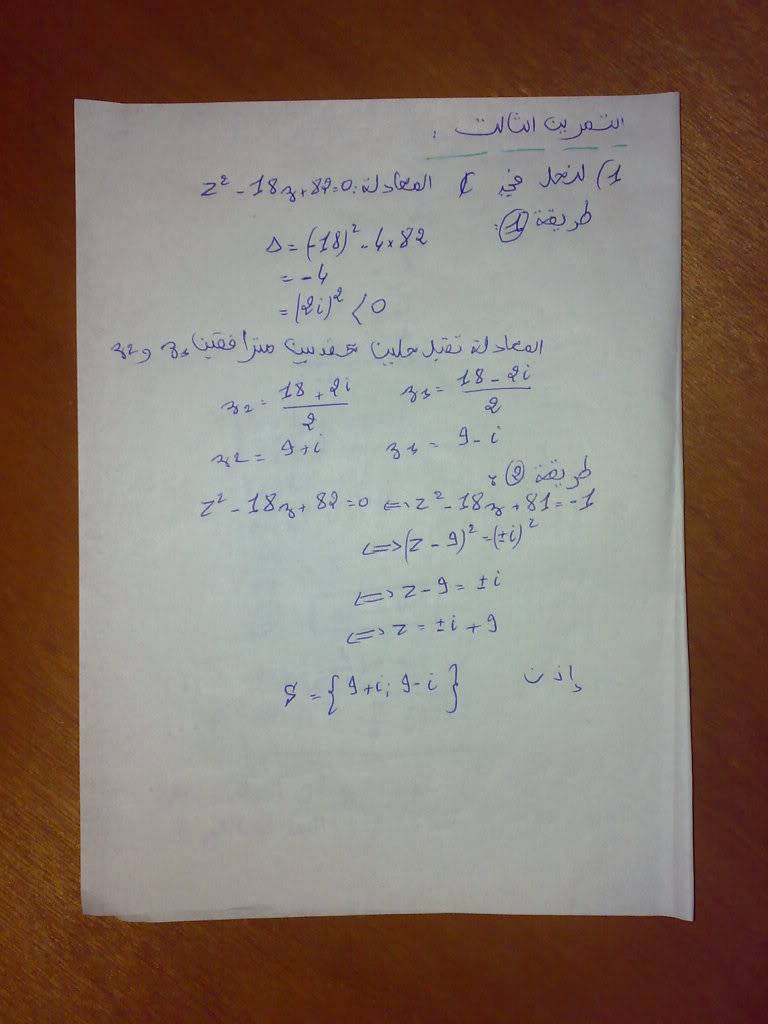 التمرين الثالث :
1) لنحل في ℂ المعادلة: z² - 18z + 82 = 0
طريقة ①:
Δ = (-18)² - 4×82
= -4
= (2i)² < 0
المعادلة تقبل حلين عقديين مترافقين z₁ و z₂
z₂ = (18 + 2i)/2    z₁ = (18 - 2i)/2
z₂ = 9+i    z₁ = 9-i
طريقة ② :
z² - 18z + 82 = 0 ⟺ z² - 18z + 81 = -1
⟺ (z - 9)² = (±i)²
⟺ z - 9 = ±i
⟺ z = ±i + 9
إذن S = {9+i; 9-i}